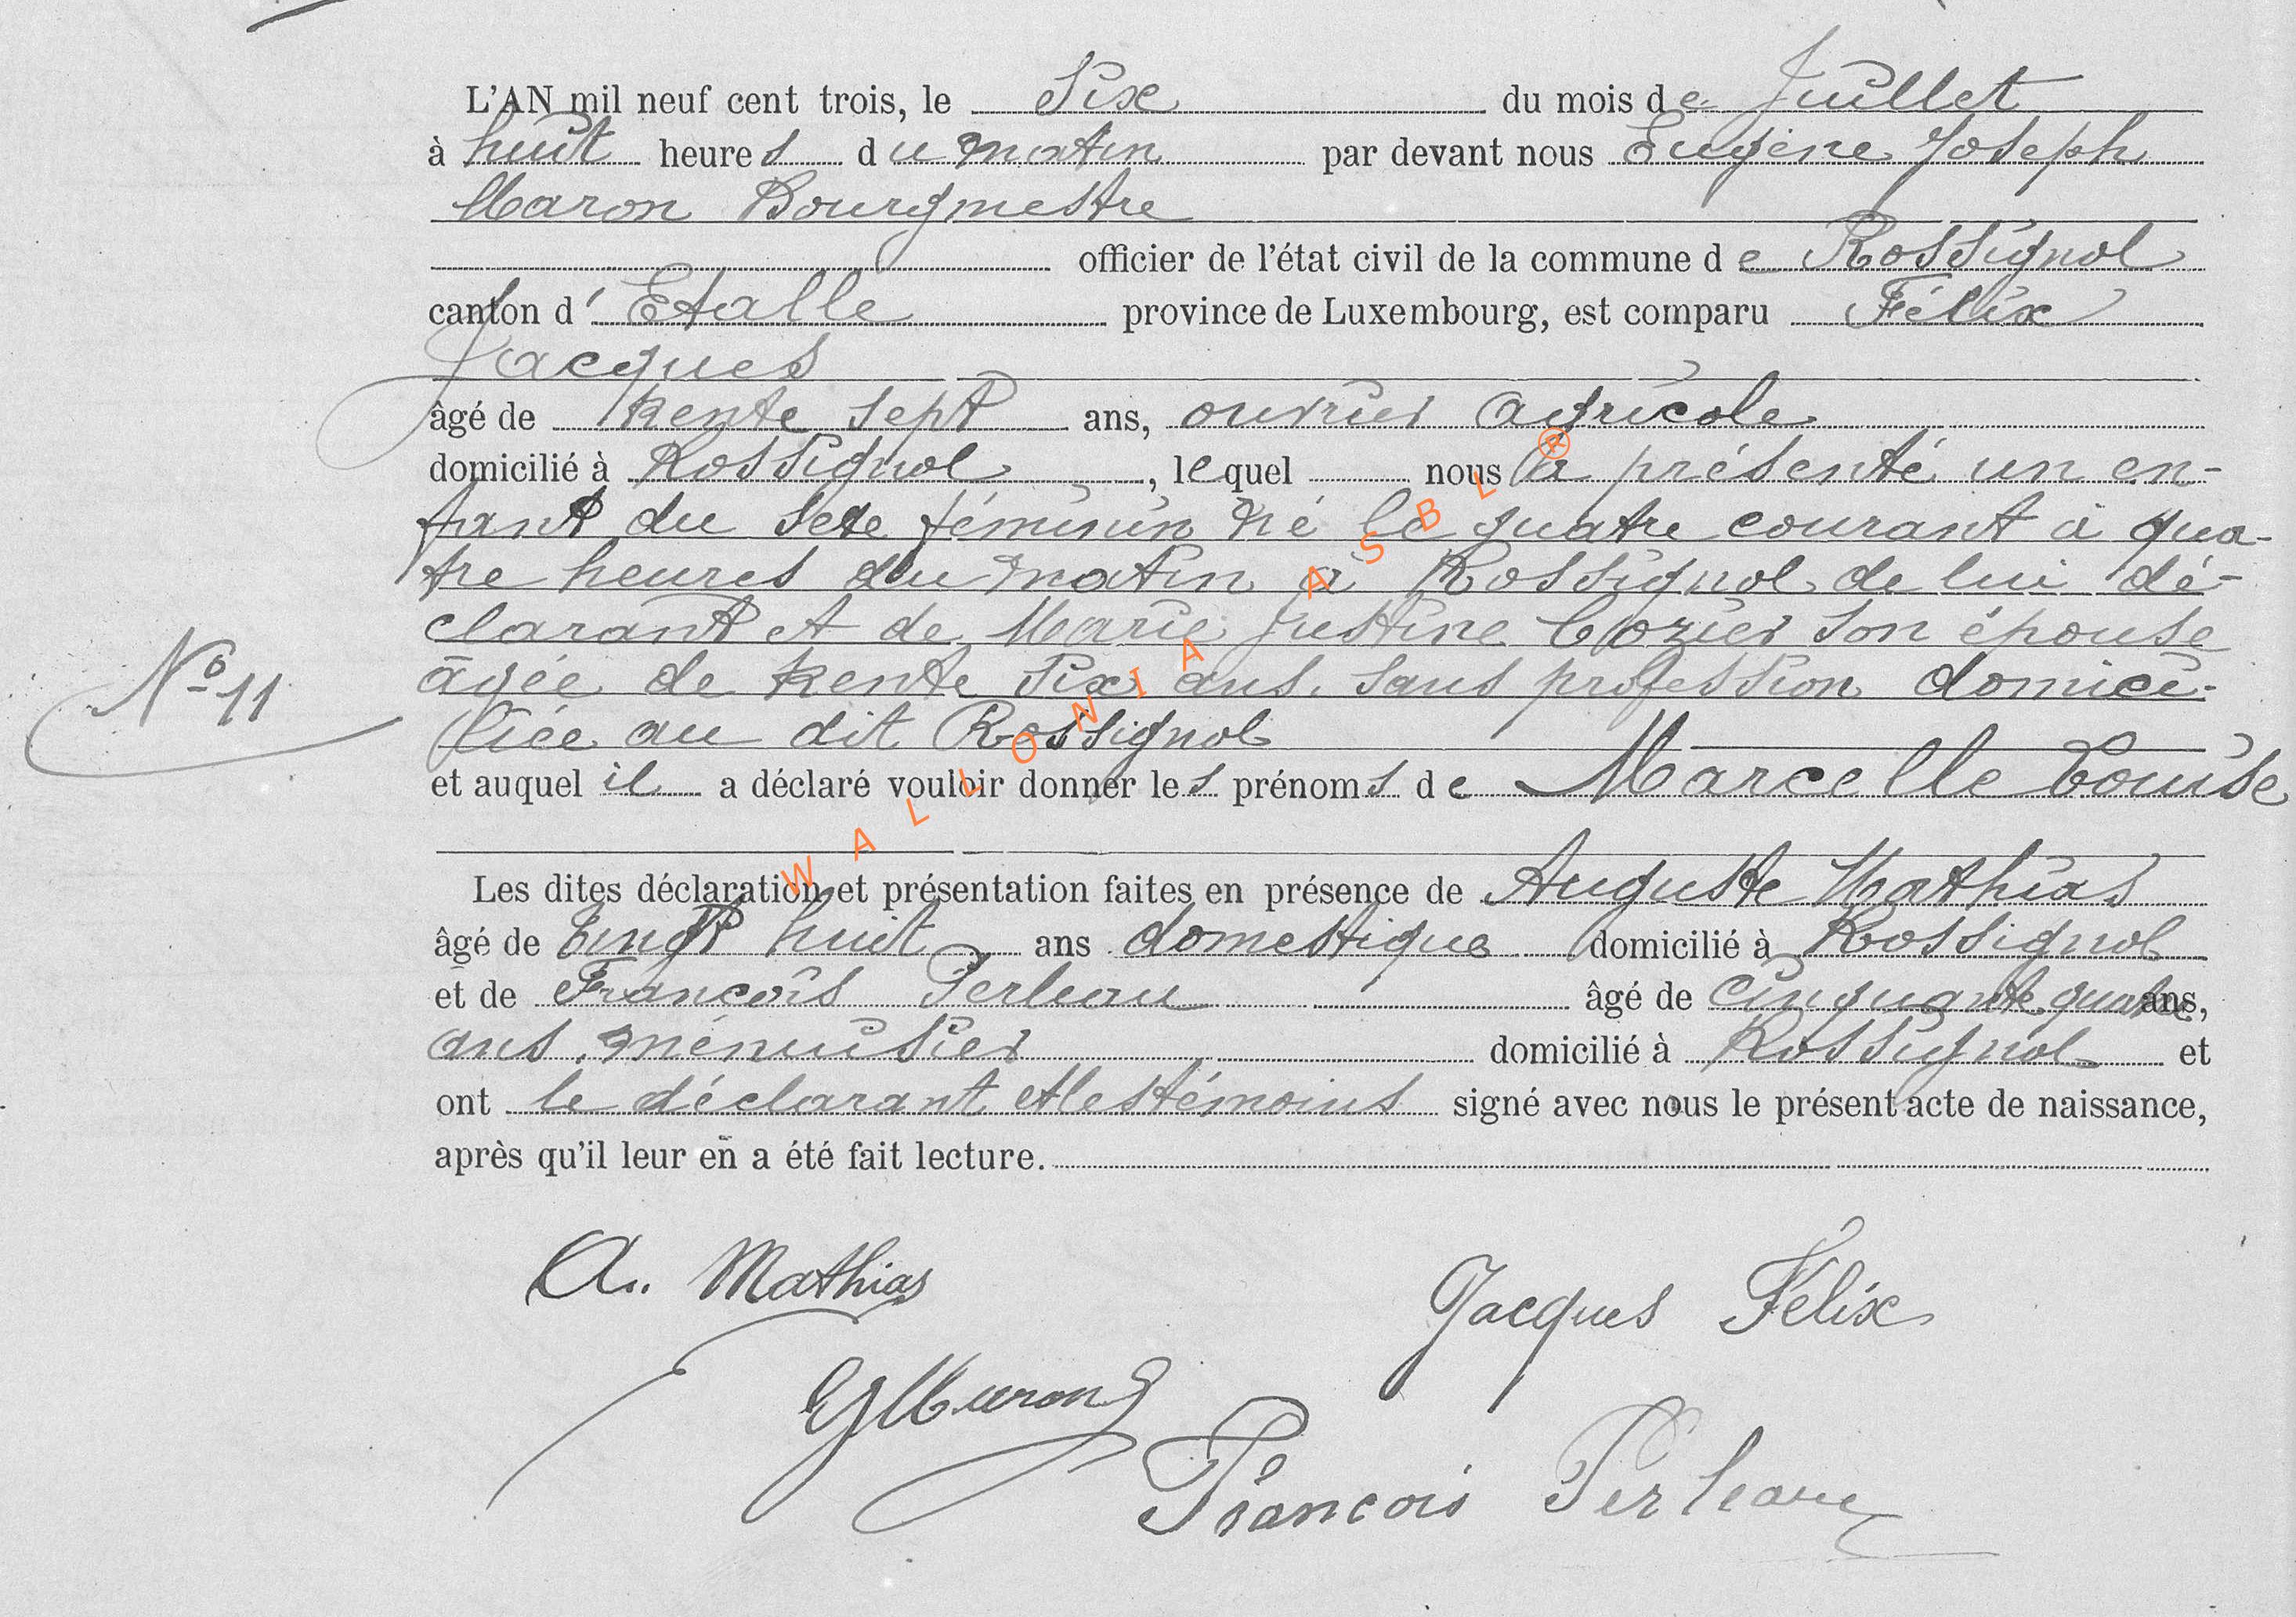 L'AN mil neuf cent trois, le Six du mois de Juillet
à huit heures du matin par devant nous Eugène Joseph
Maron Bourgmestre
officier de l'état civil de la commune de Rossignol
canton d'Etalle province de Luxembourg, est comparu Félix
Jacques
âgé de trente sept ans, ouvrier agricole
domicilié à Rossignol, lequel nous a présenté un en-
fant du sexe féminin né le quatre courant à qua-
tre heures du matin à Rossignol de lui dé-
clarant et de Marie Justine Lozier son épouse
âgée de trente six ans, sans profession domici-
liée au dit Rossignol
Nº 11
et auquel il a déclaré vouloir donner les prénoms de Marcelle Louise
Les dites déclaration et présentation faites en présence de Auguste Mathias
âgé de vingt huit ans domestique domicilié à Rossignol
et de François Perleau âgé de cinquante quatre ans,
ans, ménuisier domicilié à Rossignol et
ont le déclarant et les témoins signé avec nous le présent acte de naissance,
après qu'il leur en a été fait lecture.
A. Mathias
Jacques Félix
EJMaron
François Perleau
WALLONIA ASBL ®